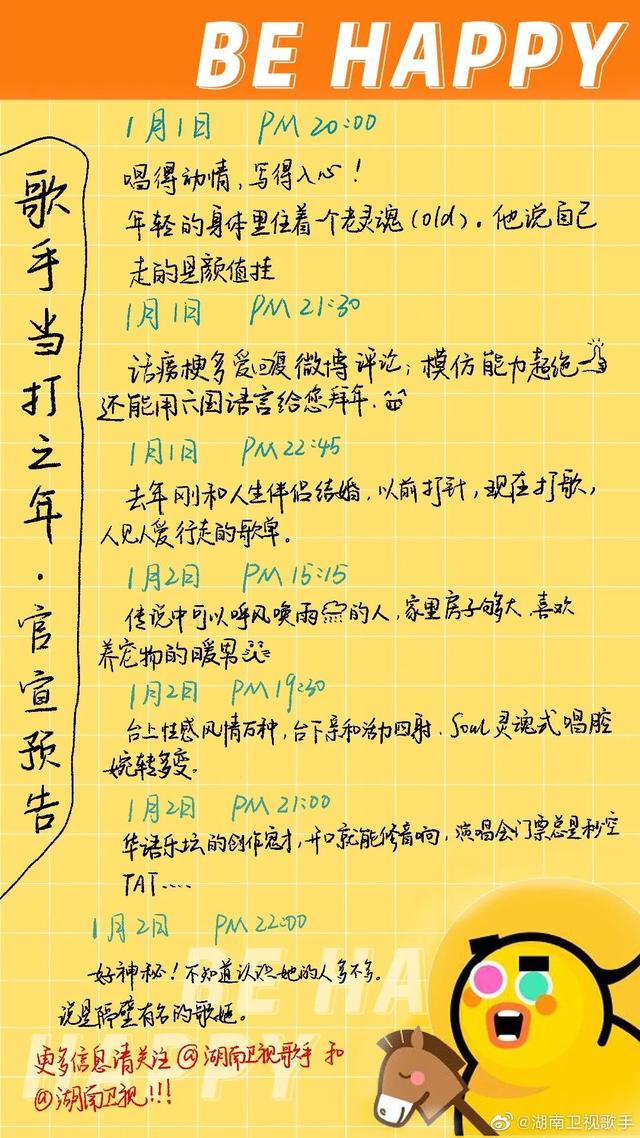 BE HAPPY
歌手当打之年·官宣预告
1月1日 PM 20:00
唱得动情,写得入心!
年轻的身体里住着一个老灵魂(old).他说自己
走的是颜值挂
1月1日 PM 21:30
话痨梗多爱回复微博评论;模仿能力超绝
还能用六国语言给您拜年.
1月1日 PM 22:45
去年刚和人生伴侣结婚,以前打针,现在打歌,
人见人爱行走的歌单。
1月2日 PM 15:15
传说中可以呼风唤雨的人,家里房子够大,喜欢
养宠物的暖男
1月2日 PM 19:30
台上性感风情万种,台下亲和活力四射.Soul灵魂式唱腔
婉转多变。
1月2日 PM 21:00
华语乐坛的创作鬼才,开口就能修音响,演唱会门票总是秒空
TAT.....
1月2日 PM 22:00
好神秘!不知道认识她的人多不多。
说是隔壁有名的歌姬。
BE HA
HAPPY
更多信息请关注@湖南卫视歌手 和
@湖南卫视!!!
@湖南卫视歌手